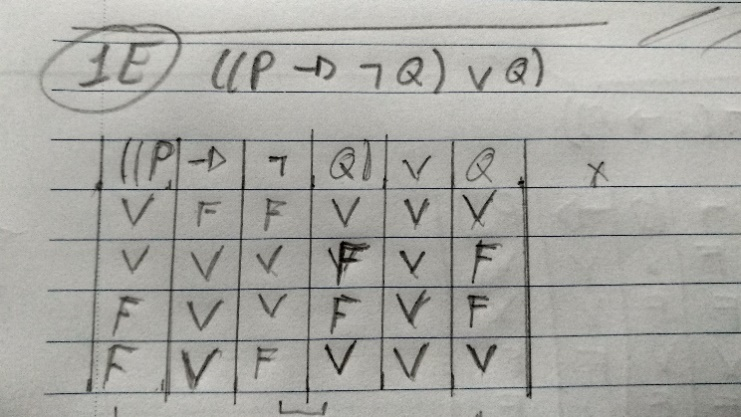 1E ((P → ¬Q) ∨ Q)
((P → ¬ Q) ∨ Q x
V F F V V V
V V V F V F
F V V F V F
F V F V V V